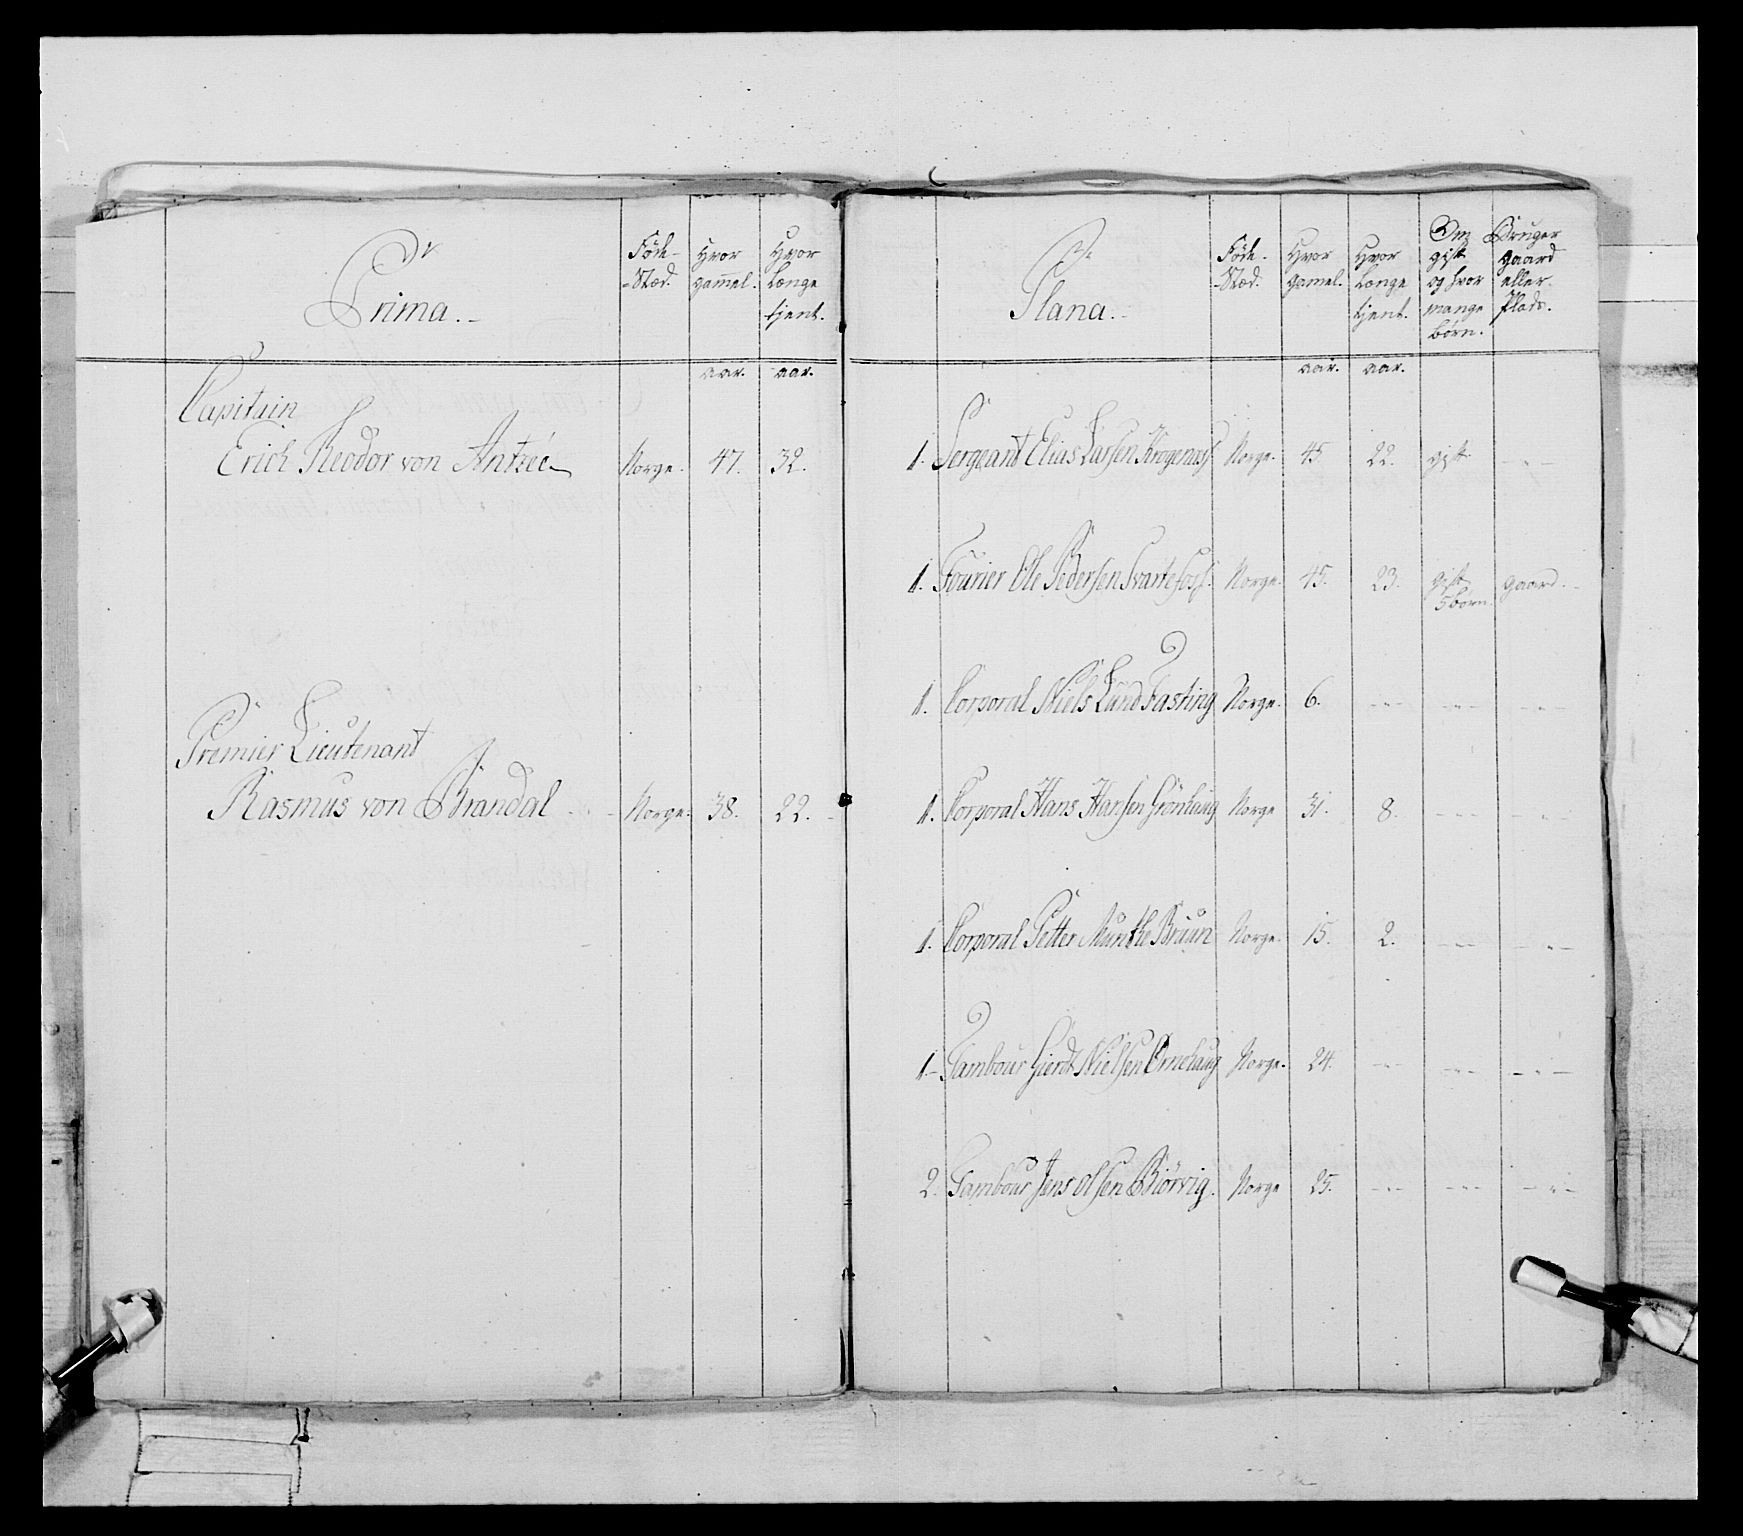 Prima.
Føde-
Stæd.
Hvor
gammel.
Hvor
Længe
tjent.
aar. aar.
Capitain
Erich Theodor von Antzée Norge. 47. 32.
Premier Lieutenant
Rasmus von Brandal Norge. 38. 22.
Plana.
Føde-
Stæd.
Hvor
gamel.
Hvor
Længe
tjent.
Om
gift
og hvor
mange
børn.
Bruger
gaard
eller
Plads.
aar. aar.
1. Sergeant Elias Larsen Norge. 45 22. gift - " -
1. Fourier Ole Pedersen Svartefos Norge. 45. 23. gift gaard.
5 børn.
1. Corporal Niels Lund Fasting Norge. 6. - " - - " - - " -
1. Corporal Hans Hansen Grønhaug Norge 31. 8. - " - - " -
1. Corporal Petter Munthe Bruun Norge. 15. 2. - " - - " -
1. Tambour Gierdt Nielsen Ornehaug Norge. 24. - " - - " - - " -
2. Tambour Jens Olsen Biørvig. Norge 25. - " - - " - - " -